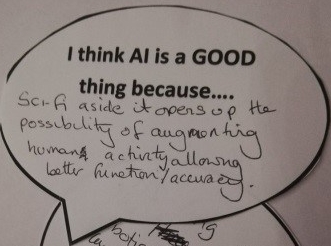 I think AI is a GOOD
thing because....
Sci-Fi aside it opens up the
possibility of augmenting
human activity allowing
better function/accuracy.